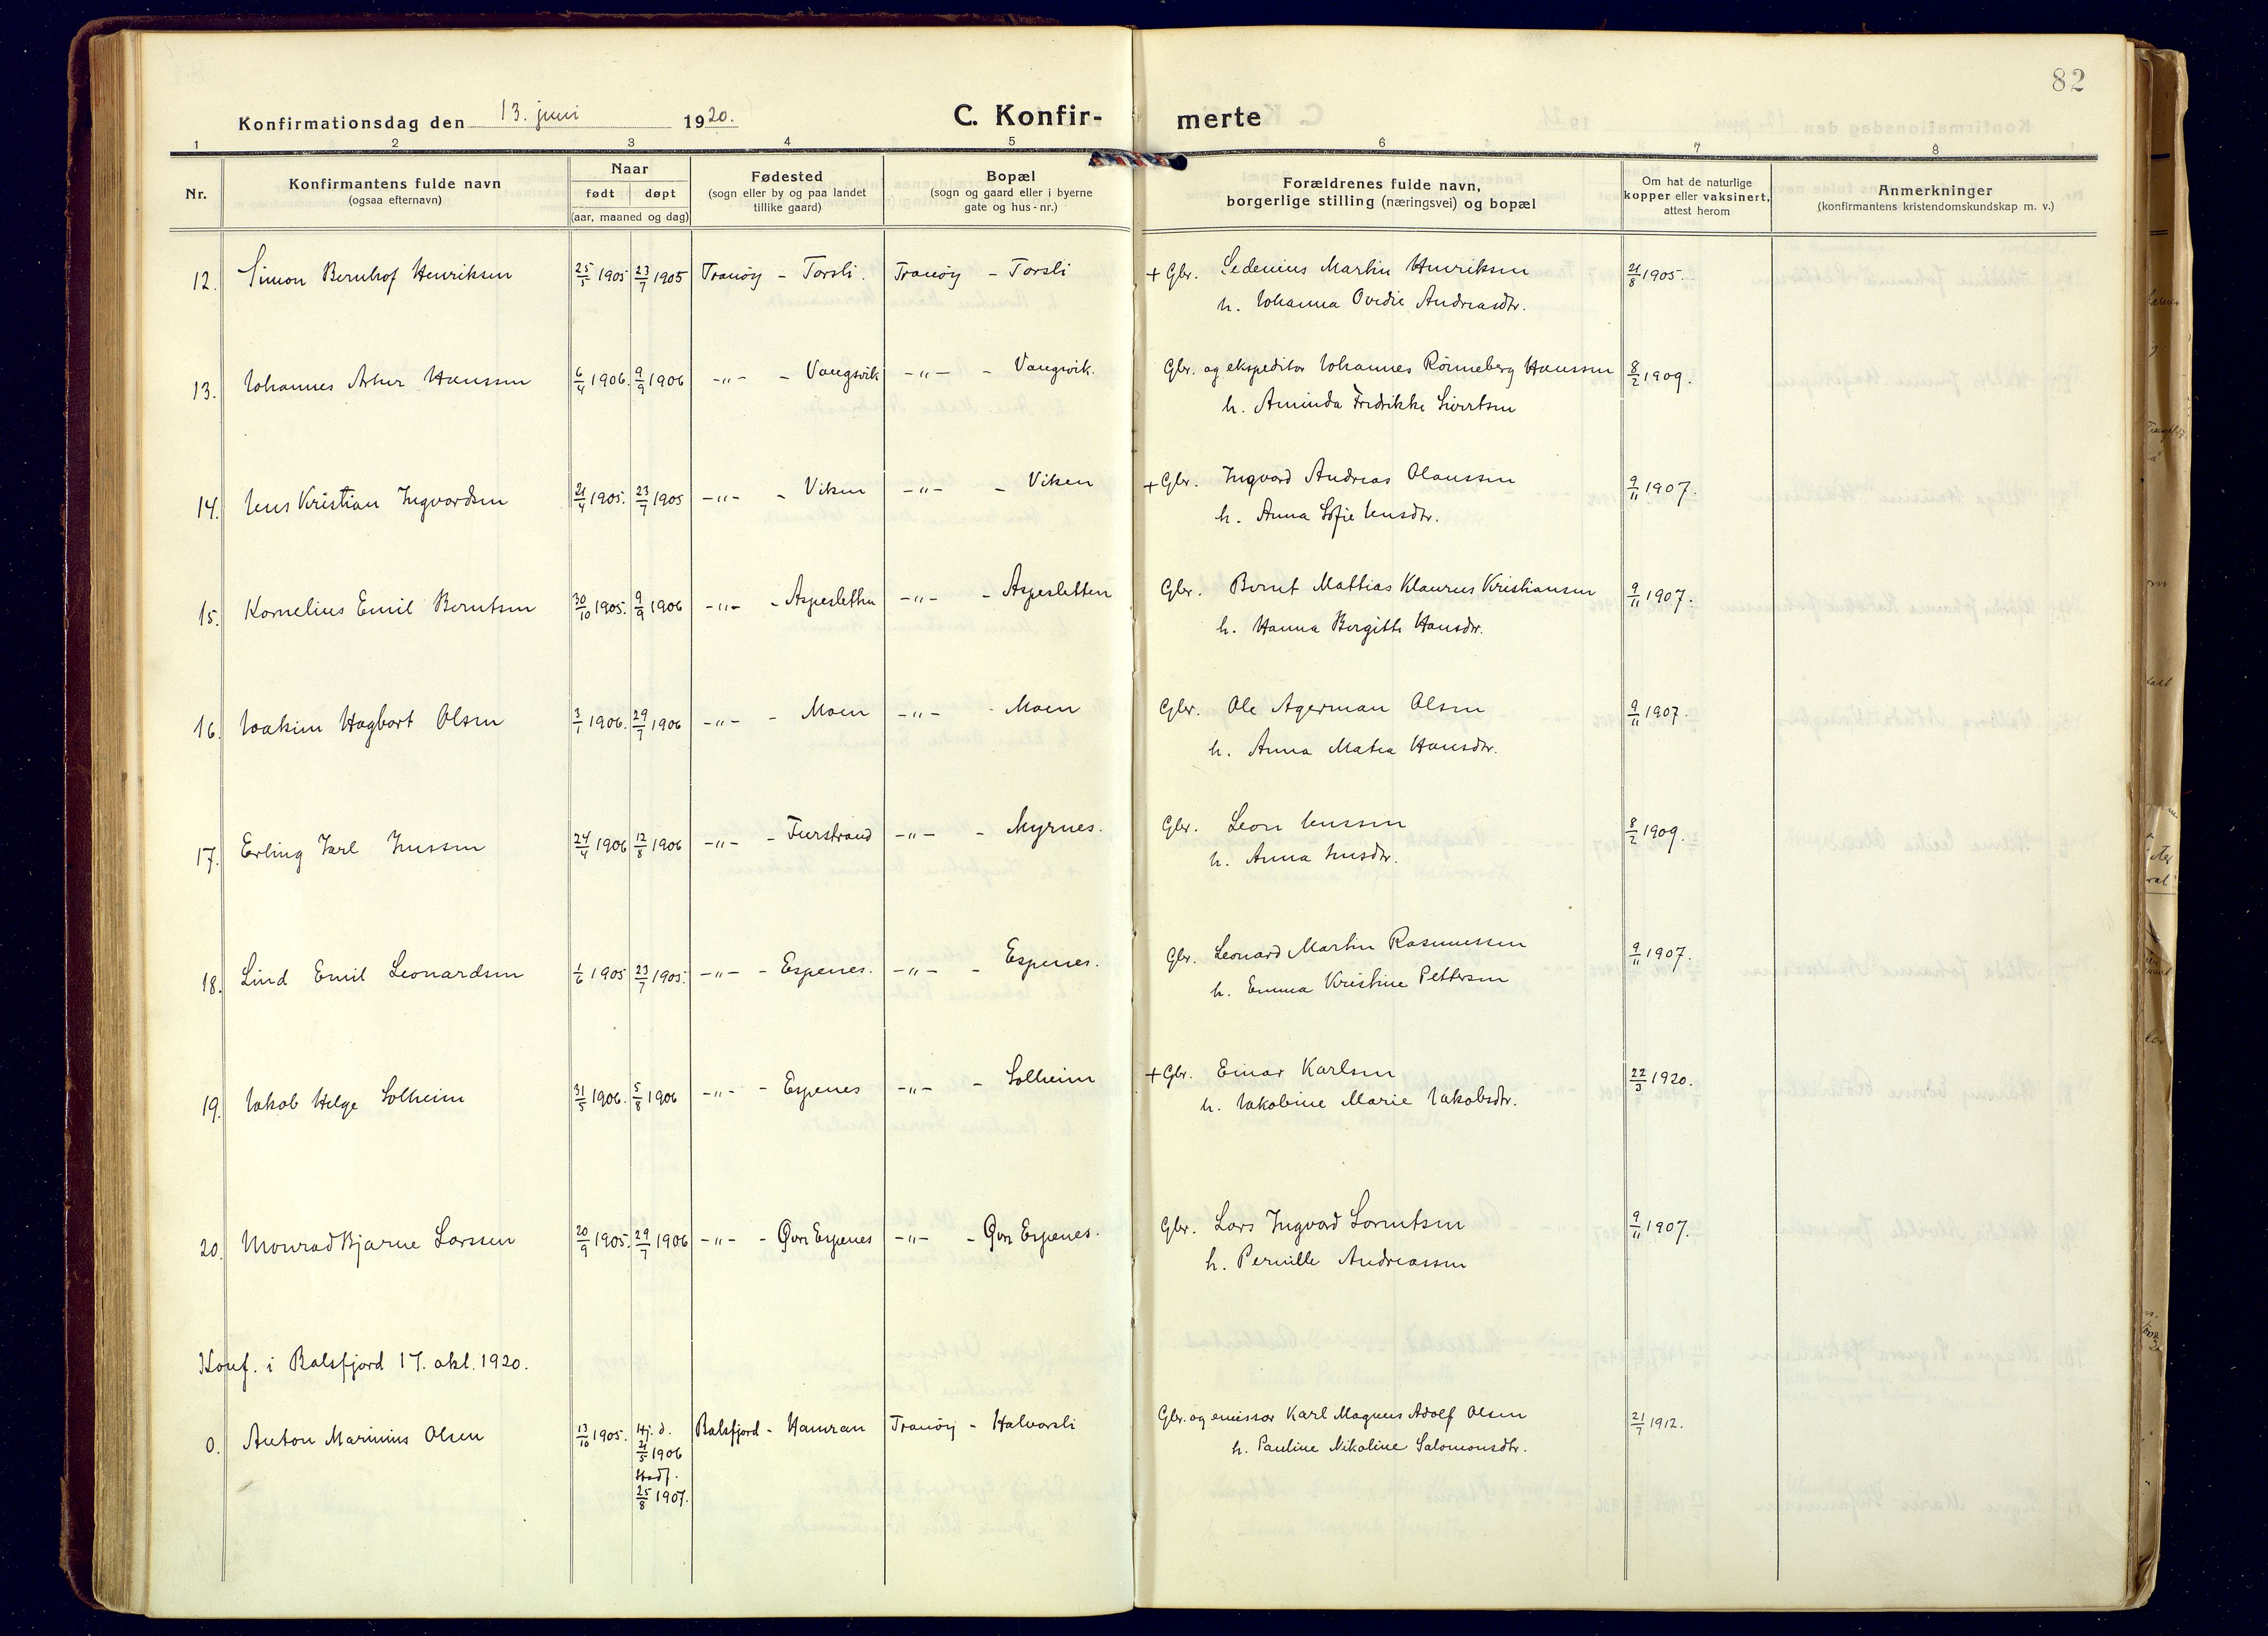 82
Konfirmationsdag den 13. juni 1920.
C. Konfir-
merte
1 2 3 4 5 6 7 8
Nr.
Konfirmantens fulde navn
(ogsaa efternavn)
Naar
født døpt
(aar, maaned og dag)
Fødested
(sogn eller by og paa landet
tillike gaard)
Bopæl
(sogn og gaard eller i byerne
gate og hus-nr.)
Forældrenes fulde navn,
borgerlige stilling (næringsvei) og bopæl
Om hat de naturlige
kopper eller vaksinert,
attest herom
Anmerkninger
(konfirmantens kristendomskundskap m. v.)
12. Simon Bernhof Henriksen 25/5 1905 23/7 1905 Tranøy - Torsli. Tranøy - Torsli + Gbr. Sedenius Martin Henriksen 21/8 1905.
h. Johanna Ovidie Andreasdtr.
13. Johannes Artur Hanssen 6/4 1906. 9/9 1906 -"- - Vangsvik -"- - Vangsvik. Gbr. og ekspeditør Johannes Rönneberg Hanssen 8/2 1909.
h. Aminda Fredrikke Sivertsen
14. Jens Kristian Ingvardsen 21/4 1905. 23/7 1905 -"- - Viken -"- - Viken + Gbr. Ingvard Andreas Olaussen 9/11 1907.
h. Anna Sofie Jensdtr.
15. Kornelius Emil Berntsen 30/10 1905. 9/9 1906 -"- - Aspesletten -"- - Aspesletten Gbr. Bernt Mattias Klaurius Kristiansen 9/11 1907.
h. Hanna Bergitte Hansdtr.
16. Joakim Hagbart Olsen 3/1 1906. 29/7 1906 -"- - Moen -"- - Moen Gbr. Ole Agerman Olsen 9/11 1907.
h. Anna Matea Hansdtr.
17. Erling Jarl Jenssen 24/4 1906 12/8 1906 -"- - Furstrand -"- - Myrnes. Gbr. Leon Jenssen 8/2 1909.
h. Anna Jensdtr.
18. Lind Emil Leonardsen 1/6 1905 23/7 1905. -"- - Espenes. -"- - Espenes. Gbr. Leonard Martin Rasmussen 9/11 1907.
h. Emma Kristine Pettersen
19. Jakob Helge Solheim 31/5 1906. 5/8 1906 -"- - Espenes -"- - Solheim + Gbr. Einar Karlsen 22/3 1920.
h. Jakobine Marie Jakobsdtr.
20. Monrad Bjarne Larssen 20/9 1905. 29/7 1906 -"- - Øvre Espenes -"- - Øvre Espenes. Gbr. Lars Ingvard Lorentsen 9/11 1907.
h. Pernille Andreassen
Konf. i Balsfjord 17. okt. 1920.
0. Anton Marinius Olsen 13/10 1905. Hj. d. Balsfjord - Hamran Tranöy - Halvorsli Gbr. og emissær Karl Magnus Adolf Olsen 21/7 1912.
21/5 1906 h. Pauline Nikoline Salomonsdtr.
Stadf.
25/8 1907.